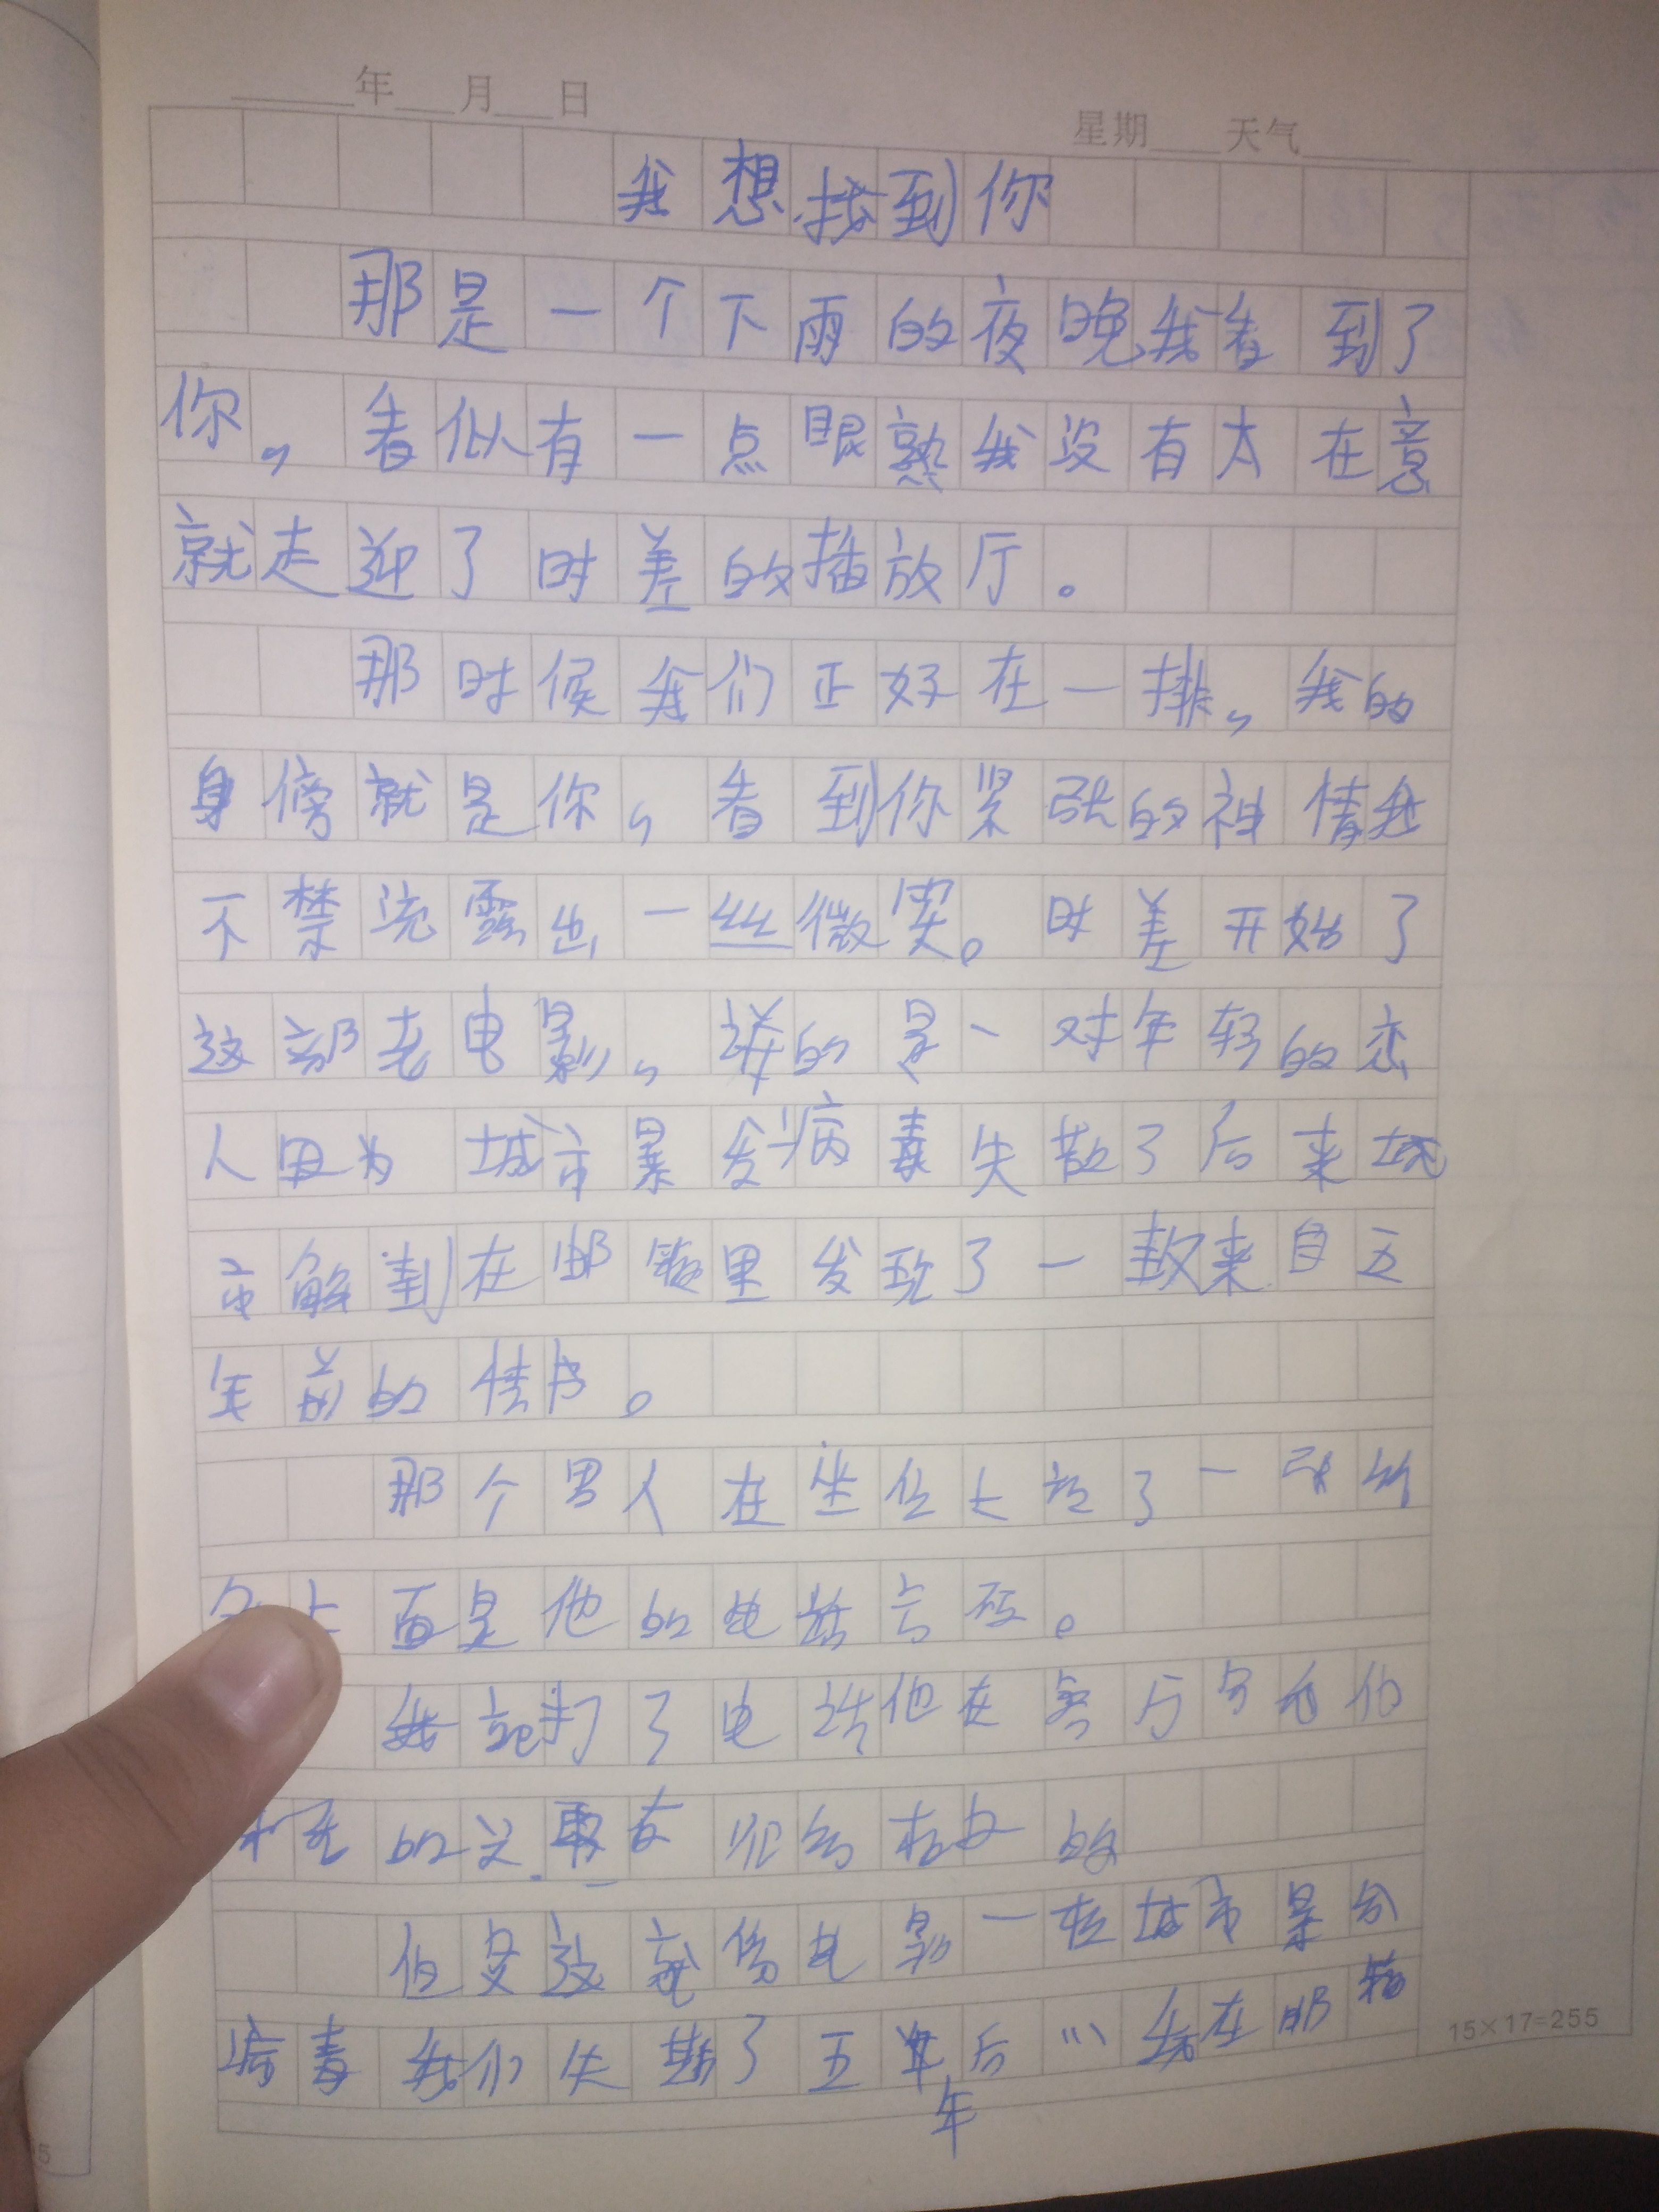 年 月 日
星期 天气
我想找到你
那是一个下雨的夜晚我看到了
你,看似有一点眼熟我没有太在意
就走迎了时差的播放厅。
那时候我们正好在一排,我的
身傍就是你,看到你紧张的神情我
不禁流露出一丝微笑。时差开始了
这部老电影,讲的是一对年轻的恋
人因为城市暴发病毒失散了后来城
市解封在邮箱里发现了一封来自五
年前的情书。
那个男人在坐位上放了一张纸
上面是他的电话号码。
我就打了电话他在客厅
的
但是这就像电影一样城市暴分
病毒我们失散了五年后…我在邮箱
年
15×17=255